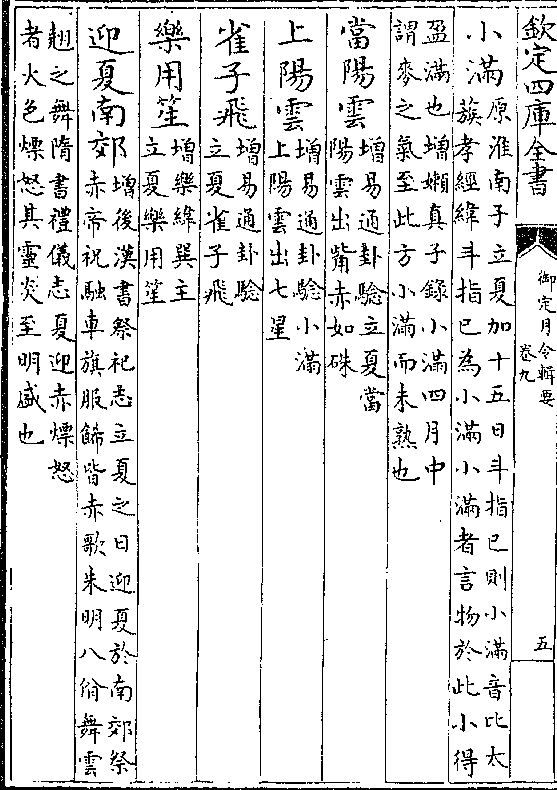 欽定四庫全書
御定月令輯要
卷九
五
小滿
原淮南子立夏加十五日斗指巳則小滿音比太
簇孝經緯斗指巳為小滿小滿者言物於此小得
盈滿也增嬾真子錄小滿四月中
謂麥之氣至此方小滿而未熟也
當陽雲
增易通卦驗立夏當
陽雲出觜赤如硃
上陽雲
增易通卦驗小滿
上陽雲出七星
雀子飛
增易通卦驗
立夏雀子飛
樂用笙
增樂緯巽主
立夏樂用笙
迎夏南郊
增後漢書祭祀志立夏之日迎夏於南郊祭
赤帝祝融車旗服飾皆赤歌朱明八佾舞雲
翹之舞隋書禮儀志夏迎赤熛怒
者火色熛怒其靈炎至明盛也